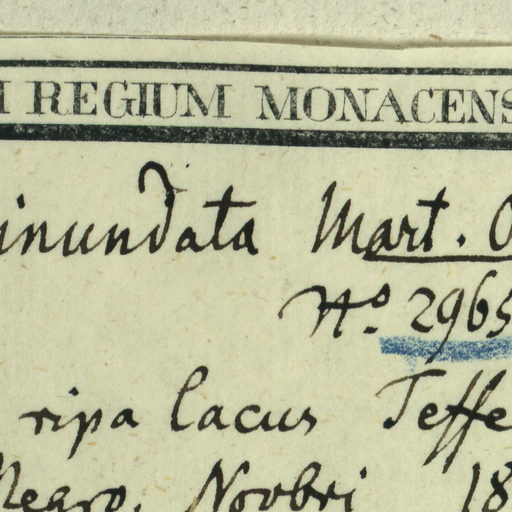 REGIUM MONACENS
inundata Mart. O
No. 2965
ripa lacus Teffe
Negro. Novbri 18